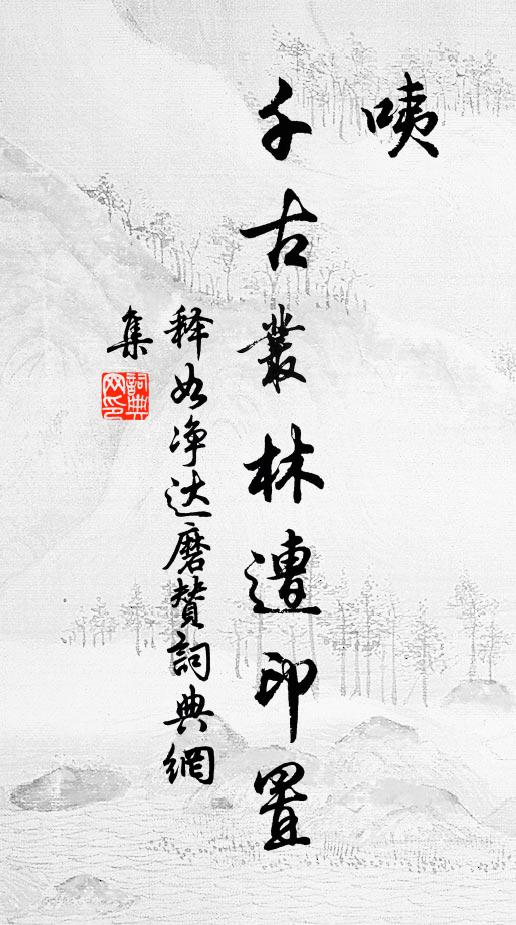 咦
千古叢林遭印置
释如净达磨贊詞典網
集
詞典
网印